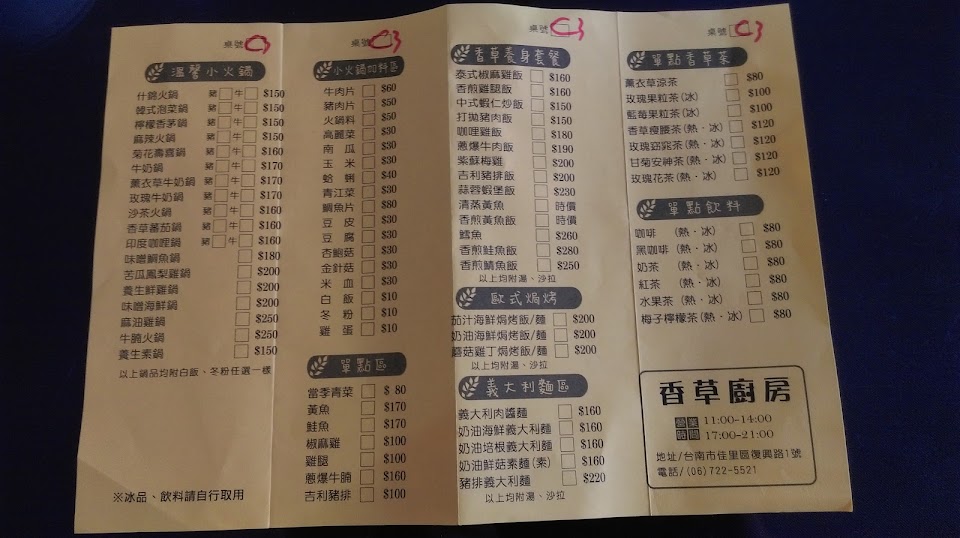 桌號 C3
溫馨小火鍋
什錦火鍋 豬□牛□ $150
韓式泡菜鍋 豬□牛□ $150
檸檬香茅鍋 豬□牛□ $150
麻辣火鍋 豬□牛□ $150
菊花壽喜鍋 豬□牛□ $160
牛奶鍋 豬□牛□ $170
薰衣草牛奶鍋 豬□牛□ $170
玫瑰牛奶鍋 豬□牛□ $170
沙茶火鍋 豬□牛□ $160
香草蕃茄鍋 豬□牛□ $160
印度咖哩鍋 豬□牛□ $160
味噌鯛魚鍋 □ $180
苦瓜鳳梨雞鍋 □ $200
養生鮮雞鍋 □ $200
味噌海鮮鍋 □ $200
麻油雞鍋 □ $250
牛腩火鍋 □ $250
養生素鍋 □ $150
以上鍋品均附白飯、冬粉任選一樣
※冰品、飲料請自行取用
桌號 C3
小火鍋加料區
牛肉片 □ $60
豬肉片 □ $50
火鍋料 □ $50
高麗菜 □ $30
南瓜 □ $30
玉米 □ $30
蛤蜊 □ $40
青江菜 □ $30
鯛魚片 □ $80
豆皮 □ $30
豆腐 □ $30
杏鮑菇 □ $30
金針菇 □ $30
米血 □ $30
白飯 □ $10
冬粉 □ $10
雞蛋 □ $10
單點區
當季青菜 □ $ 80
黃魚 □ $170
鮭魚 □ $170
椒麻雞 □ $100
雞腿 □ $100
蔥爆牛腩 □ $160
吉利豬排 □ $100
桌號 C3
香草養身套餐
泰式椒麻雞飯 □ $160
香煎雞腿飯 □ $160
中式蝦仁炒飯 □ $150
打拋豬肉飯 □ $150
咖哩雞飯 □ $180
蔥爆牛肉飯 □ $190
紫蘇梅雞 □ $200
吉利豬排飯 □ $200
蒜蓉蝦堡飯 □ $230
清蒸黃魚 □ 時價
香煎黃魚飯 □ 時價
鱈魚 □ $260
香煎鮭魚飯 □ $280
香煎鯖魚飯 □ $250
以上均附湯、沙拉
歐式焗烤
茄汁海鮮焗烤飯/麵 □ $200
奶油海鮮焗烤飯/麵 □ $200
蘑菇雞丁焗烤飯/麵 □ $200
以上均附湯、沙拉
義大利麵區
義大利肉醬麵 □ $160
奶油海鮮義大利麵 □ $160
奶油培根義大利麵 □ $160
奶油鮮菇素麵(素) □ $160
豬排義大利麵 □ $220
以上均附湯、沙拉
桌號 C3
單點香草茶
薰衣草涼茶 □ $80
玫瑰果粒茶(冰) □ $100
藍莓果粒茶(冰) □ $100
香草瘦腰茶(熱·冰) □ $120
玫瑰窈窕茶(熱·冰) □ $120
甘菊安神茶(熱·冰) □ $120
玫瑰花茶(熱·冰) □ $120
單點飲料
咖啡 (熱·冰) □ $80
黑咖啡 (熱·冰) □ $80
奶茶 (熱·冰) □ $80
紅茶 (熱·冰) □ $80
水果茶 (熱·冰) □ $80
梅子檸檬茶(熱·冰) □ $80
香草廚房
營業時間 11:00-14:00
17:00-21:00
地址/台南市佳里區復興路1號
電話/(06)722-5521